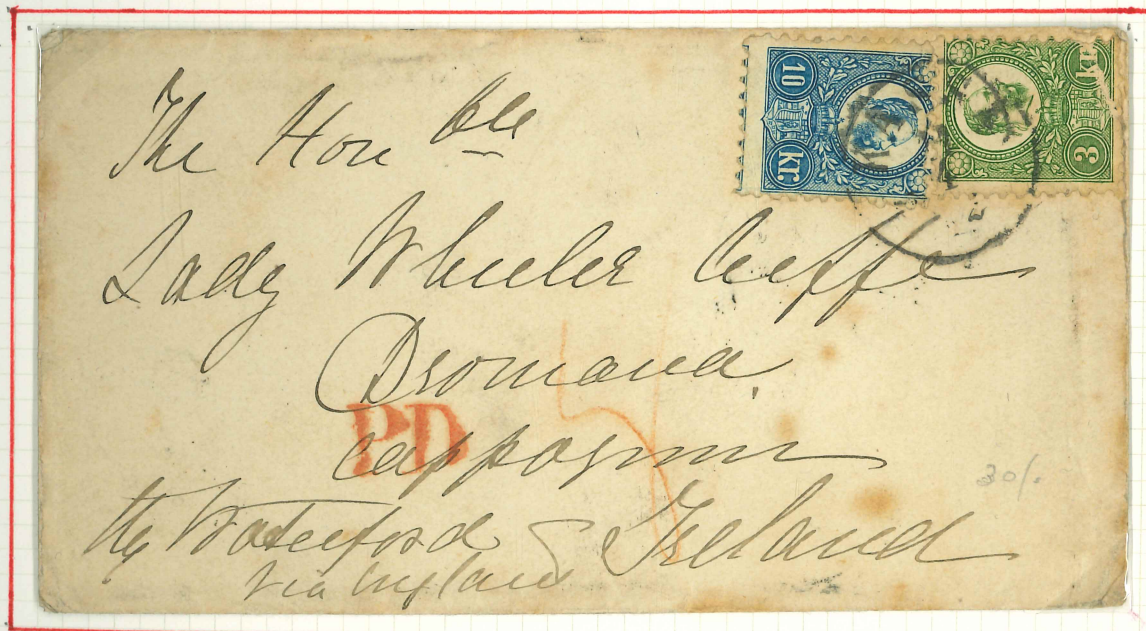 10 kr.
3 kr.
The Hon ble
Lady Wheeler Cuffe
Dromana
PD
Cappoquin
Waterford Ireland
via England
30/.